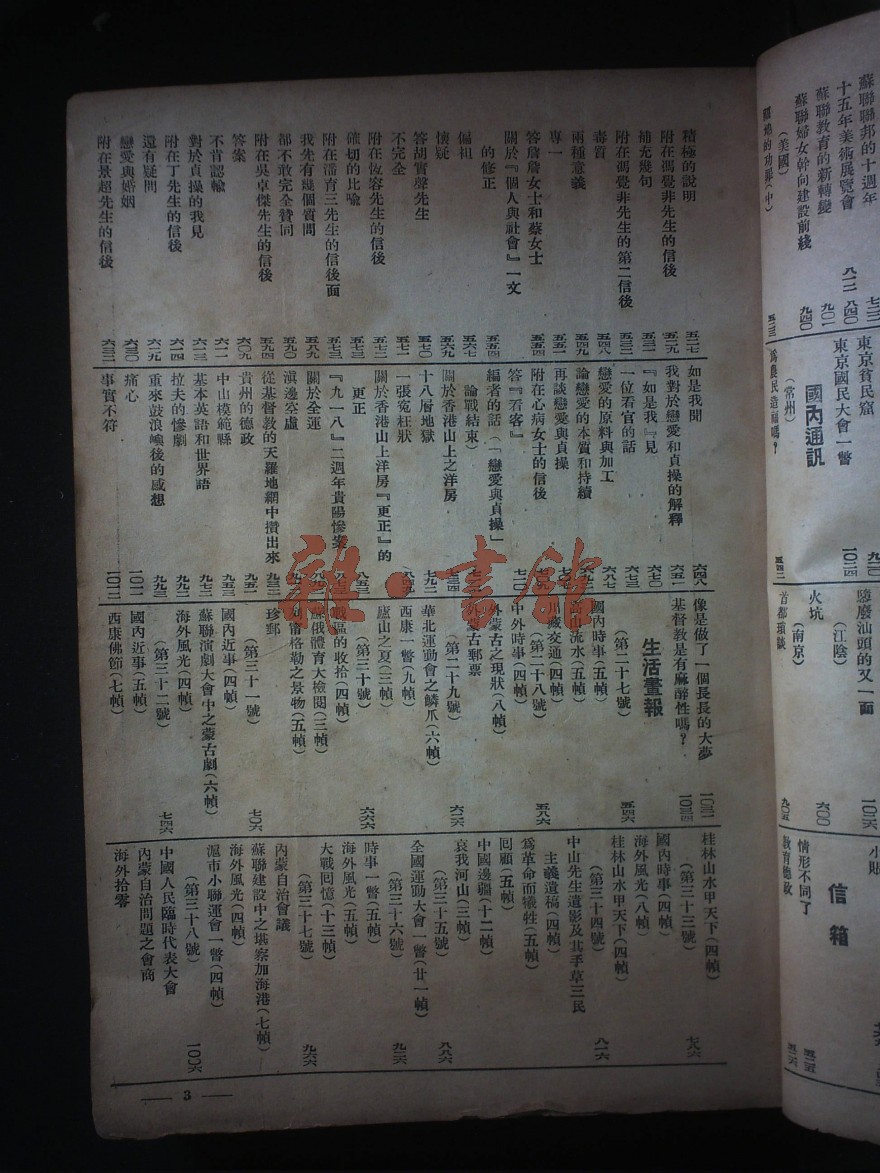 蘇聯聯邦的十週年
十五年美術展覽會 八四〇
蘇聯教育的新轉變 九〇一
蘇聯婦女幹向建設前綫 九四〇
(美國)
東京貧民窟
東京國民大會一瞥 一〇二四
國內通訊
(常州)
爲農民造福嗎? 五四二
墮廢汕頭的又一面
(江陰)
火坑 六〇〇
(南京)
首都瑣號
信箱
情形不同了 五二五
積極的說明 五二七
附在馮覺非先生的信後 五二九
補充幾句 五三一
附在馮覺非先生的第二信後 五三二
毒質 五四八
兩種意義 五四九
專一 五五一
答詹詹女士和蔡女士 五五四
關於『個人與社會』一文
的修正 五五四
偏袒 五六七
懷疑 五六九
答胡實聲先生 五七〇
不完全 五七一
附在恆容先生的信後 五七二
確切的比喻 五七三
附在潘育三先生的信後面 五七三
我先有幾個質問 五八九
都不敢完全贊同 五九〇
附在吳卓傑先生的信後 五九四
答案 六〇九
不肯認輸 六一一
對於貞操的我見 六一三
附在丁先生的信後 六一四
還有疑問 六二九
戀愛與婚姻 六三〇
附在景超先生的信後 六三二
如是我聞 六四八
我對於戀愛和貞操的解釋 六五一
『如是我』見 六七〇
一位看官的話 六七三
戀愛的原料與加工
論戀愛的本質和持續
再談戀愛與貞操
附在心病女士的信後
答『看客』 七一〇
編者的話(「戀愛與貞操」
論戰結束)
關於香港山上之洋房
十八層地獄 七九二
一張冤枉狀
關於香港山上洋房『更正』的
更正 八五三
『九一八』二週年貴陽慘案
關於全運
滇邊空虛
從基督教的天羅地網中攢出來 九三二
貴州的德政 九五一
中山模範縣 九五三
基本英語和世界語 九七二
拉夫的慘劇 九九二
重來鼓浪嶼後的感想 九九三
痛心 一〇一一
事實不符 一〇一二
像是做了一個長長的大夢 一〇三二
基督教是有麻醉性嗎? 一〇三四
生活畫報
(第二十七號) 五四六
國內時事(五幀)
高山流水(五幀)
川藏交通(四幀)
(第二十八號) 五八六
中外時事(四幀)
外蒙古之現狀(八幀)
蒙古郵票
(第二十九號) 六二六
華北運動會之鱗爪(六幀)
西康一瞥(九幀)
廬山之夏(三幀)
(第三十號) 六六六
戰區的收拾(四幀)
蘇俄體育大檢閱(三幀)
列甯格勒之景物(五幀)
珍郵
(第三十一號) 七〇六
國內近事(四幀)
蘇聯演劇大會中之蒙古劇(六幀)
海外風光(四幀)
(第三十二號) 七四六
國內近事(五幀)
西康佛節(七幀)
桂林山水甲天下(四幀)
(第三十三號) 七八六
國內時事(四幀)
海外風光(八幀)
桂林山水甲天下(四幀)
(第三十四號) 八一六
中山先生遺影及其手草三民
主義遺稿(四幀)
爲革命而犧牲(五幀)
回顧(五幀)
中國邊疆(十二幀)
哀我河山(三幀)
(第三十五號) 八八六
全國運動大會一瞥(廿一幀)
(第三十六號) 九二六
時事一瞥(五幀)
海外風光(五幀)
大戰回憶(十三幀)
(第三十七號) 九六六
內蒙自治會議
蘇聯建設中之堪察加海港(七幀)
海外風光(四幀)
滬市小聯運會一瞥(四幀)
(第三十八號) 一〇〇六
中國人民臨時代表大會
內蒙自治問題之會商
海外拾零
— 3 —
雜·書館